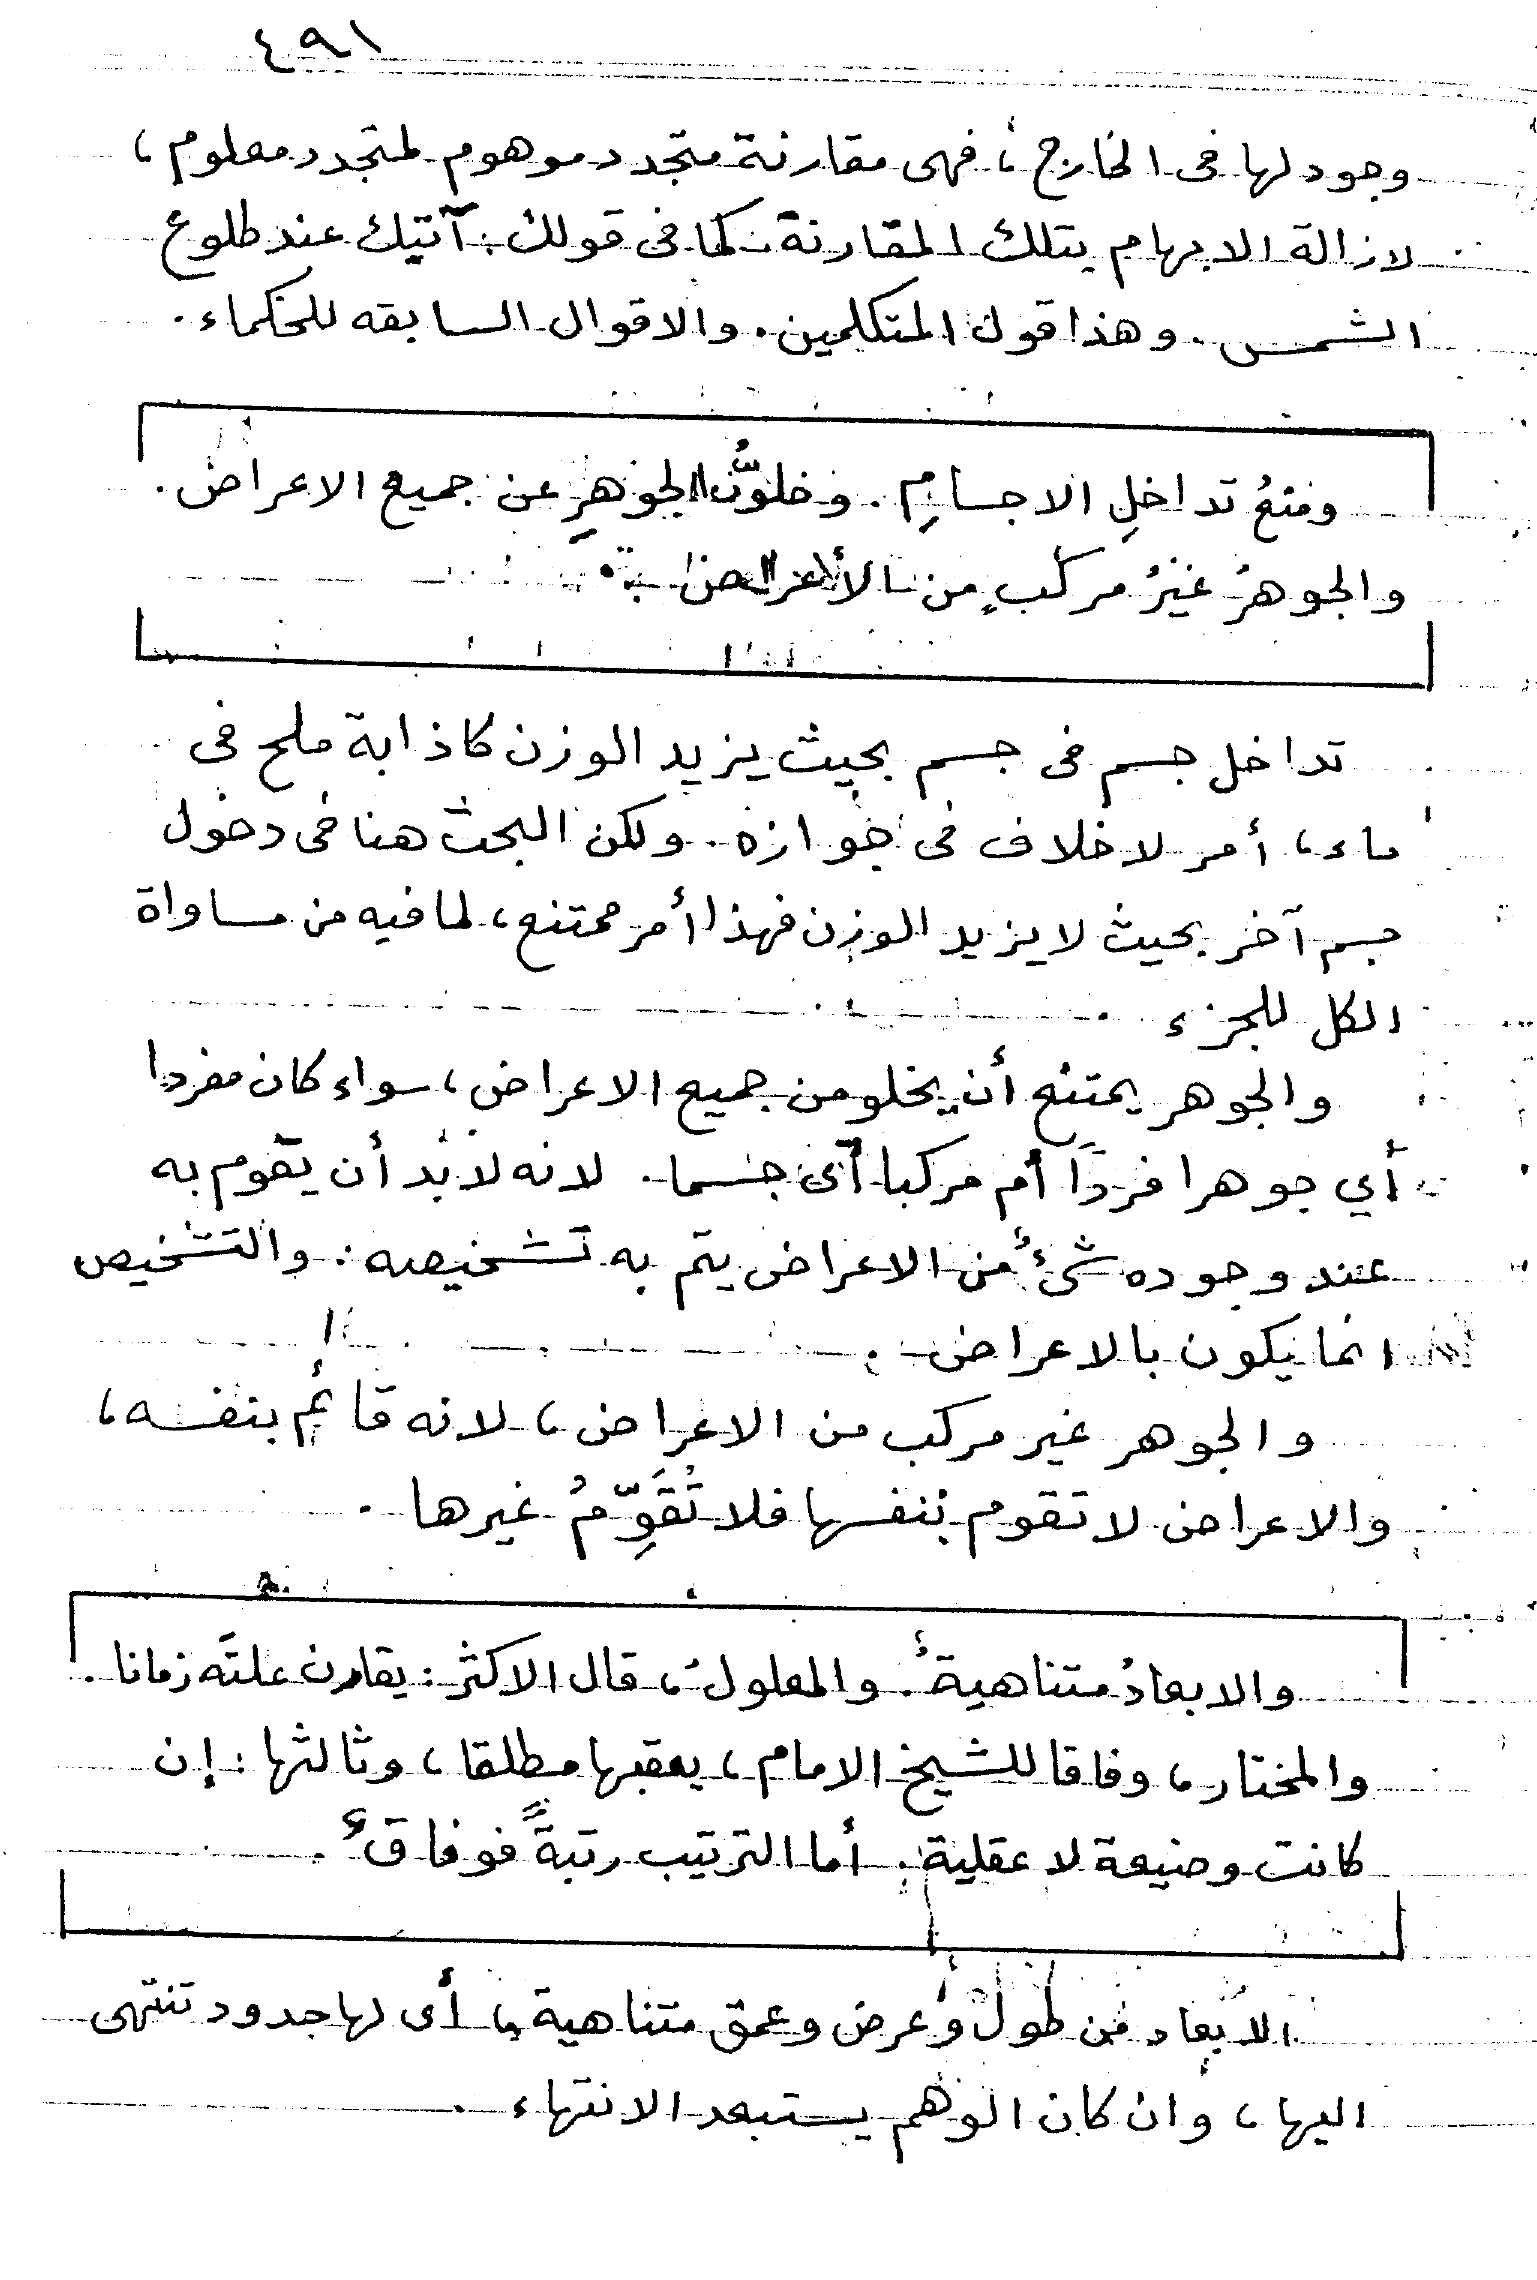 ٤٩١
وجود لها فى الخارج ، فهى مقارنة متجدد موهوم لمتجدد معلوم ،
لازالة الابهام بتلك المقارنة . كما فى قولك : آتيك عند طلوع
الشمس . وهذا قول المتكلمين . والاقوال السابقه للحكماء .
ومنعُ تداخلِ الاجسامِ . وخلوُّ الجوهرِ عن جميع الاعراض .
والجوهرُ غيرُ مركبٍ من الأعراض .
تداخل جسم فى جسم بحيث يزيد الوزن كاذابة ملح فى
ماء ، أمر لاخلاف فى جوازه . ولكن البحث هنا فى دخول
جسم آخر بحيث لا يزيد الوزن فهذا أمر ممتنع ، لما فيه من مساواة
الكل للجزء .
والجوهر يمتنع أن يخلو من جميع الاعراض ، سواء كان مفردا
أي جوهرا فرداً أم مركبا أى جسما . لانه لابد أن يقوم به
عند وجوده شئ من الاعراض يتم به تشخيصه : والتشخيص
انما يكون بالاعراض .
والجوهر غير مركب من الاعراض ، لانه قائم بنفسه ،
والاعراض لا تقوم بنفسها فلا تُقَوِّمُ غيرها .
والابعادُ متناهيةٌ . والمعلول ، قال الاكثر : يقارن علتَه زمانا .
والمختار ، وفاقا للشيخ الامام ، يعقبها مطلقا ، وثالثها : إن
كانت وضيعة لا عقلية . أما الترتيب رتبةً فوفاقٌ .
الابعاد من طول وعرض وعمق متناهية ، أى لها حدود تنتهى
اليها ، وان كان الوهم يستبعد الانتهاء .